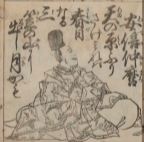 安倍仲麿
天の原ふり
さけみれは
春日
なる
三
笠の山に
出し月かも